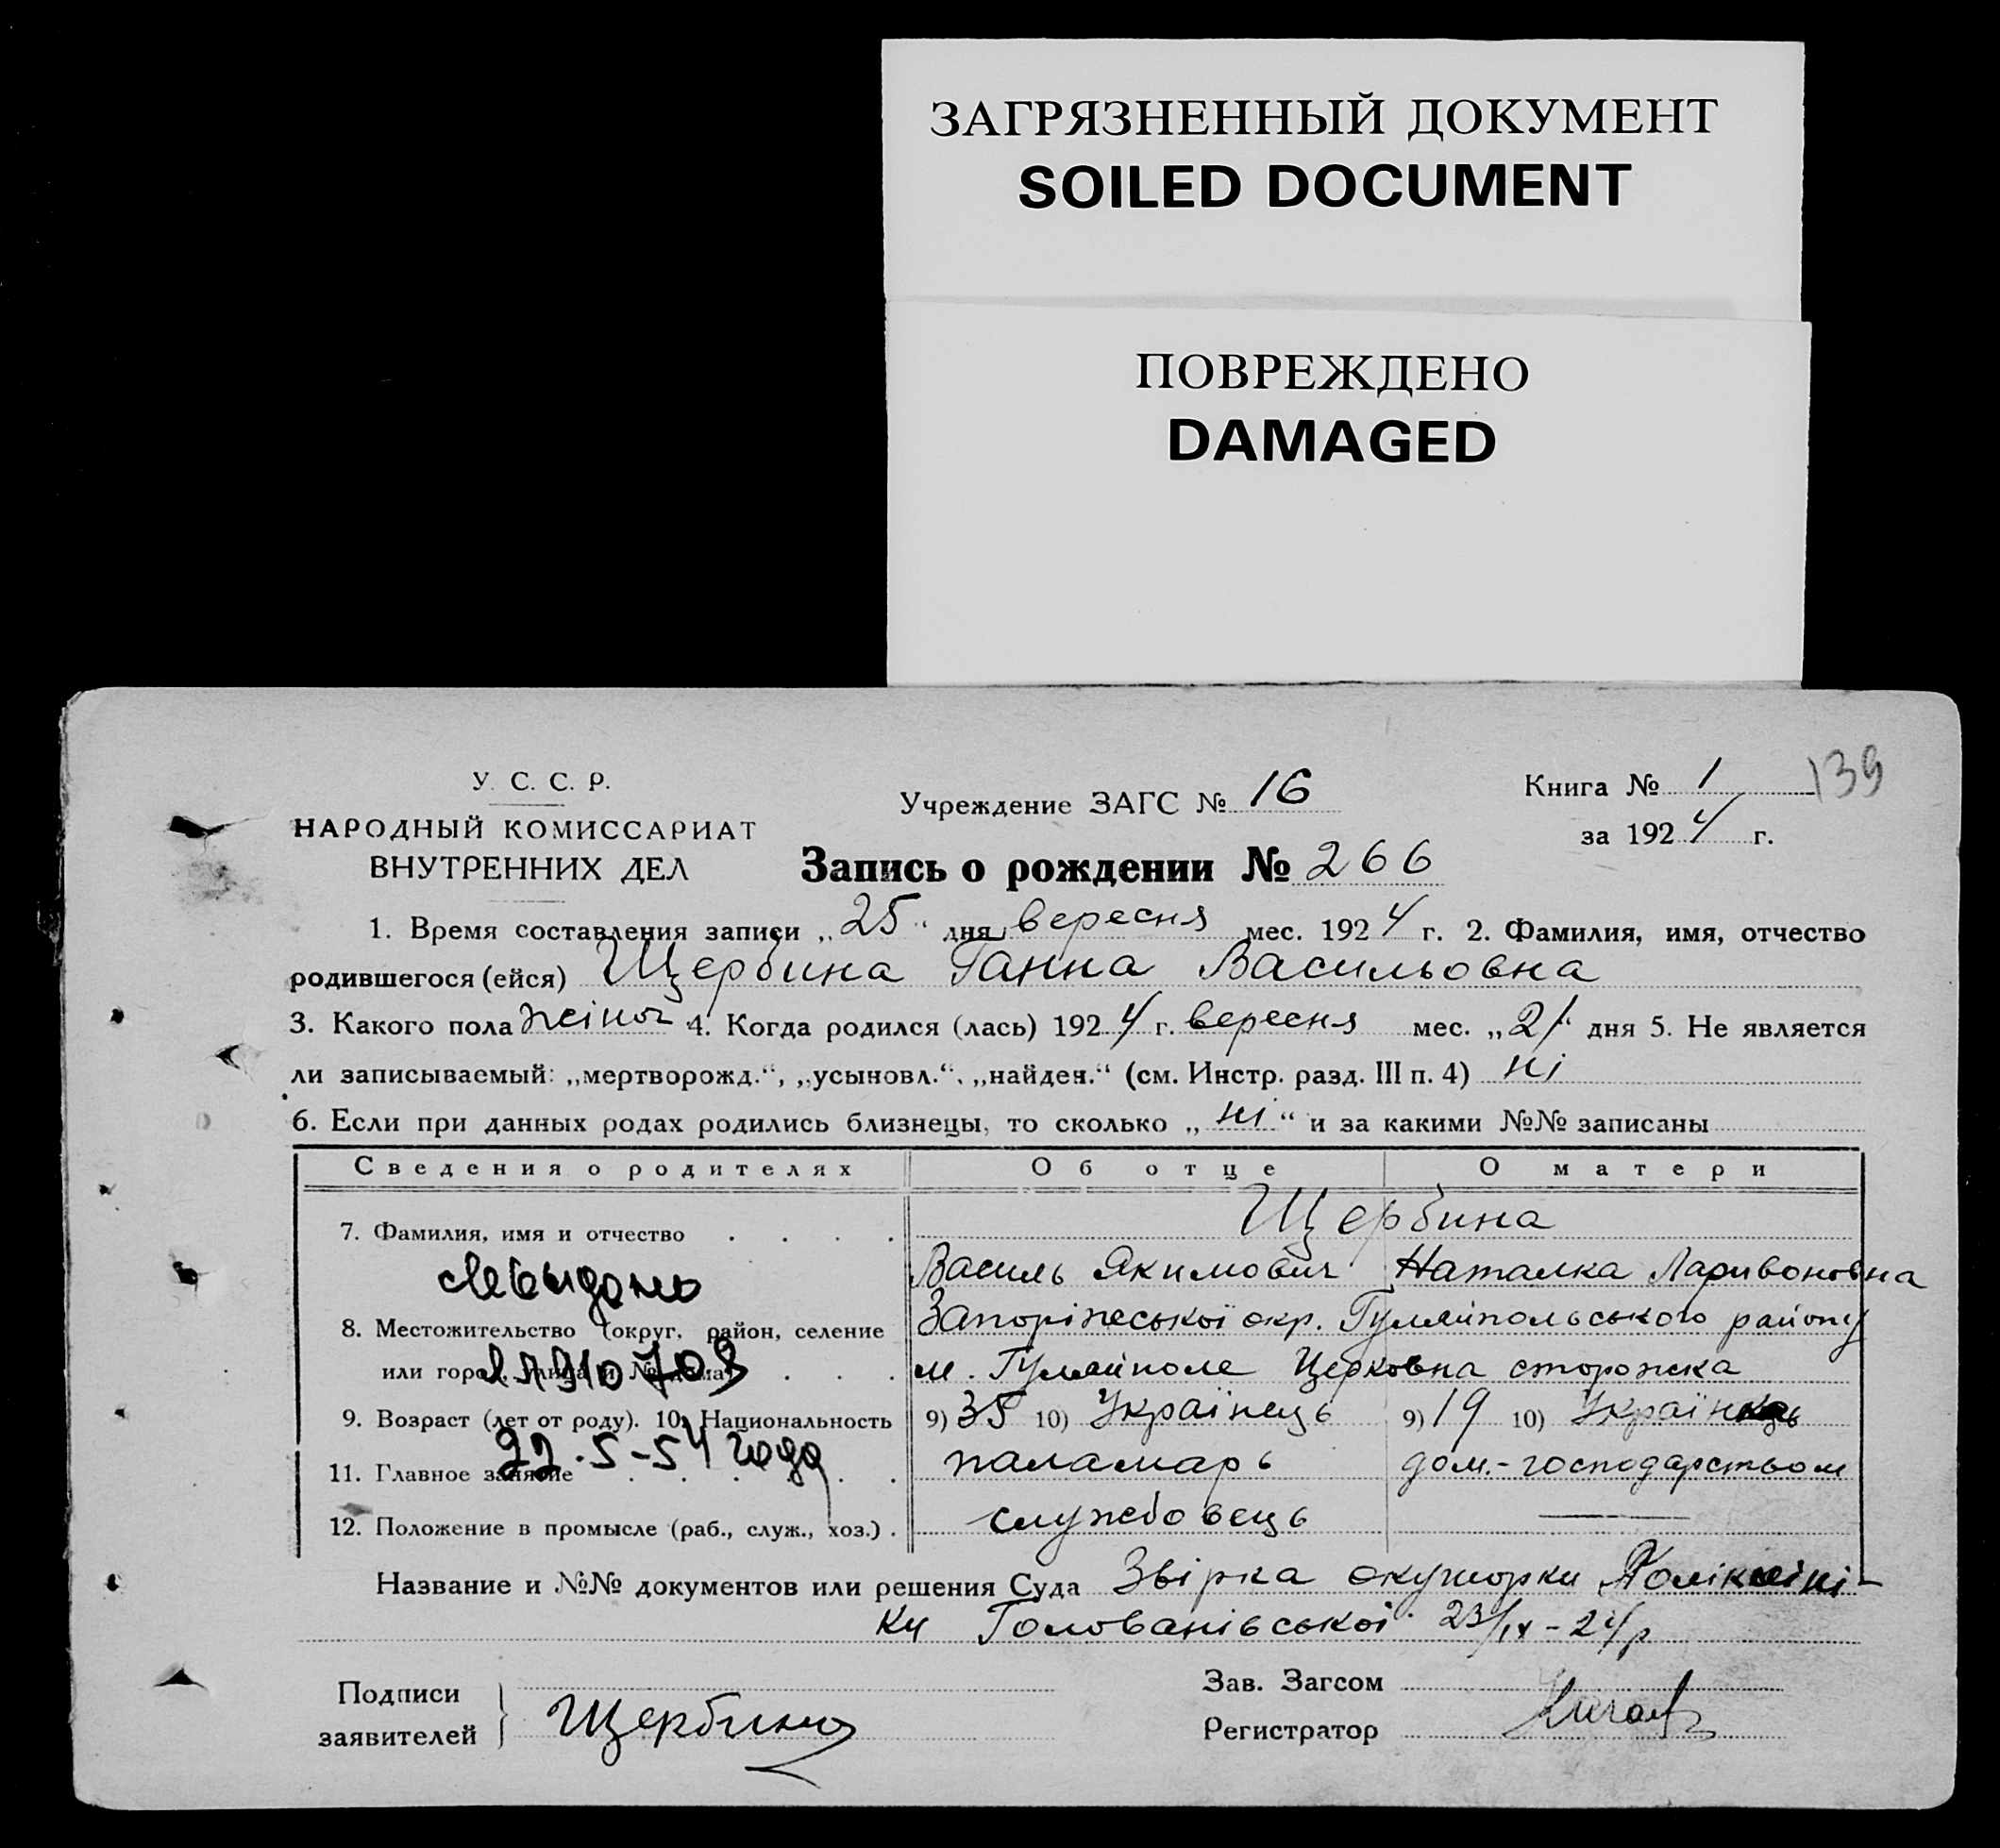 ЗАГРЯЗНЕННЫЙ ДОКУМЕНТ
SOILED DOCUMENT
ПОВРЕЖДЕНО
DAMAGED
139
У. С. С. Р.
НАРОДНЫЙ КОМИССАРИАТ
ВНУТРЕННИХ ДЕЛ
Учреждение ЗАГС № 16
Книга № 1
за 1924 г.
Запись о рождении № 266
1. Время составления записи „25“ дня вересня мес. 1924 г. 2. Фамилия, имя, отчество
родившегося (ейся) Щербина Ганна Васильовна
3. Какого пола жіноч. 4. Когда родился (лась) 1924 г. вересня мес. „21“ дня 5. Не является
ли записываемый: „мертворожд.“, „усыновл.“, „найден.“ (см. Инстр. разд. III п. 4) ні
6. Если при данных родах родились близнецы, то сколько „ні“ и за какими №№ записаны
Сведения о родителях Об отце О матери
7. Фамилия, имя и отчество Щербина
Василь Якимович Наталка Ларивоновна
8. Местожительство (округ, район, селение Запоріжської окр. Гуляйпольського району
или город, улица и № дома) м. Гуляйполе Церковна сторожка
9. Возраст (лет от роду). 10. Национальность 9) 35 10) Українець 9) 19 10) Українка
22.5-54 года
11. Главное занятие паламарь дом.-господарством
12. Положение в промысле (раб., служ., хоз.) службовець
Название и №№ документов или решения Суда Звірка акушорки Полікліні-
ки Голованівської 23/IX-24/р
Подписи
заявителей Щербина
Зав. Загсом
Регистратор